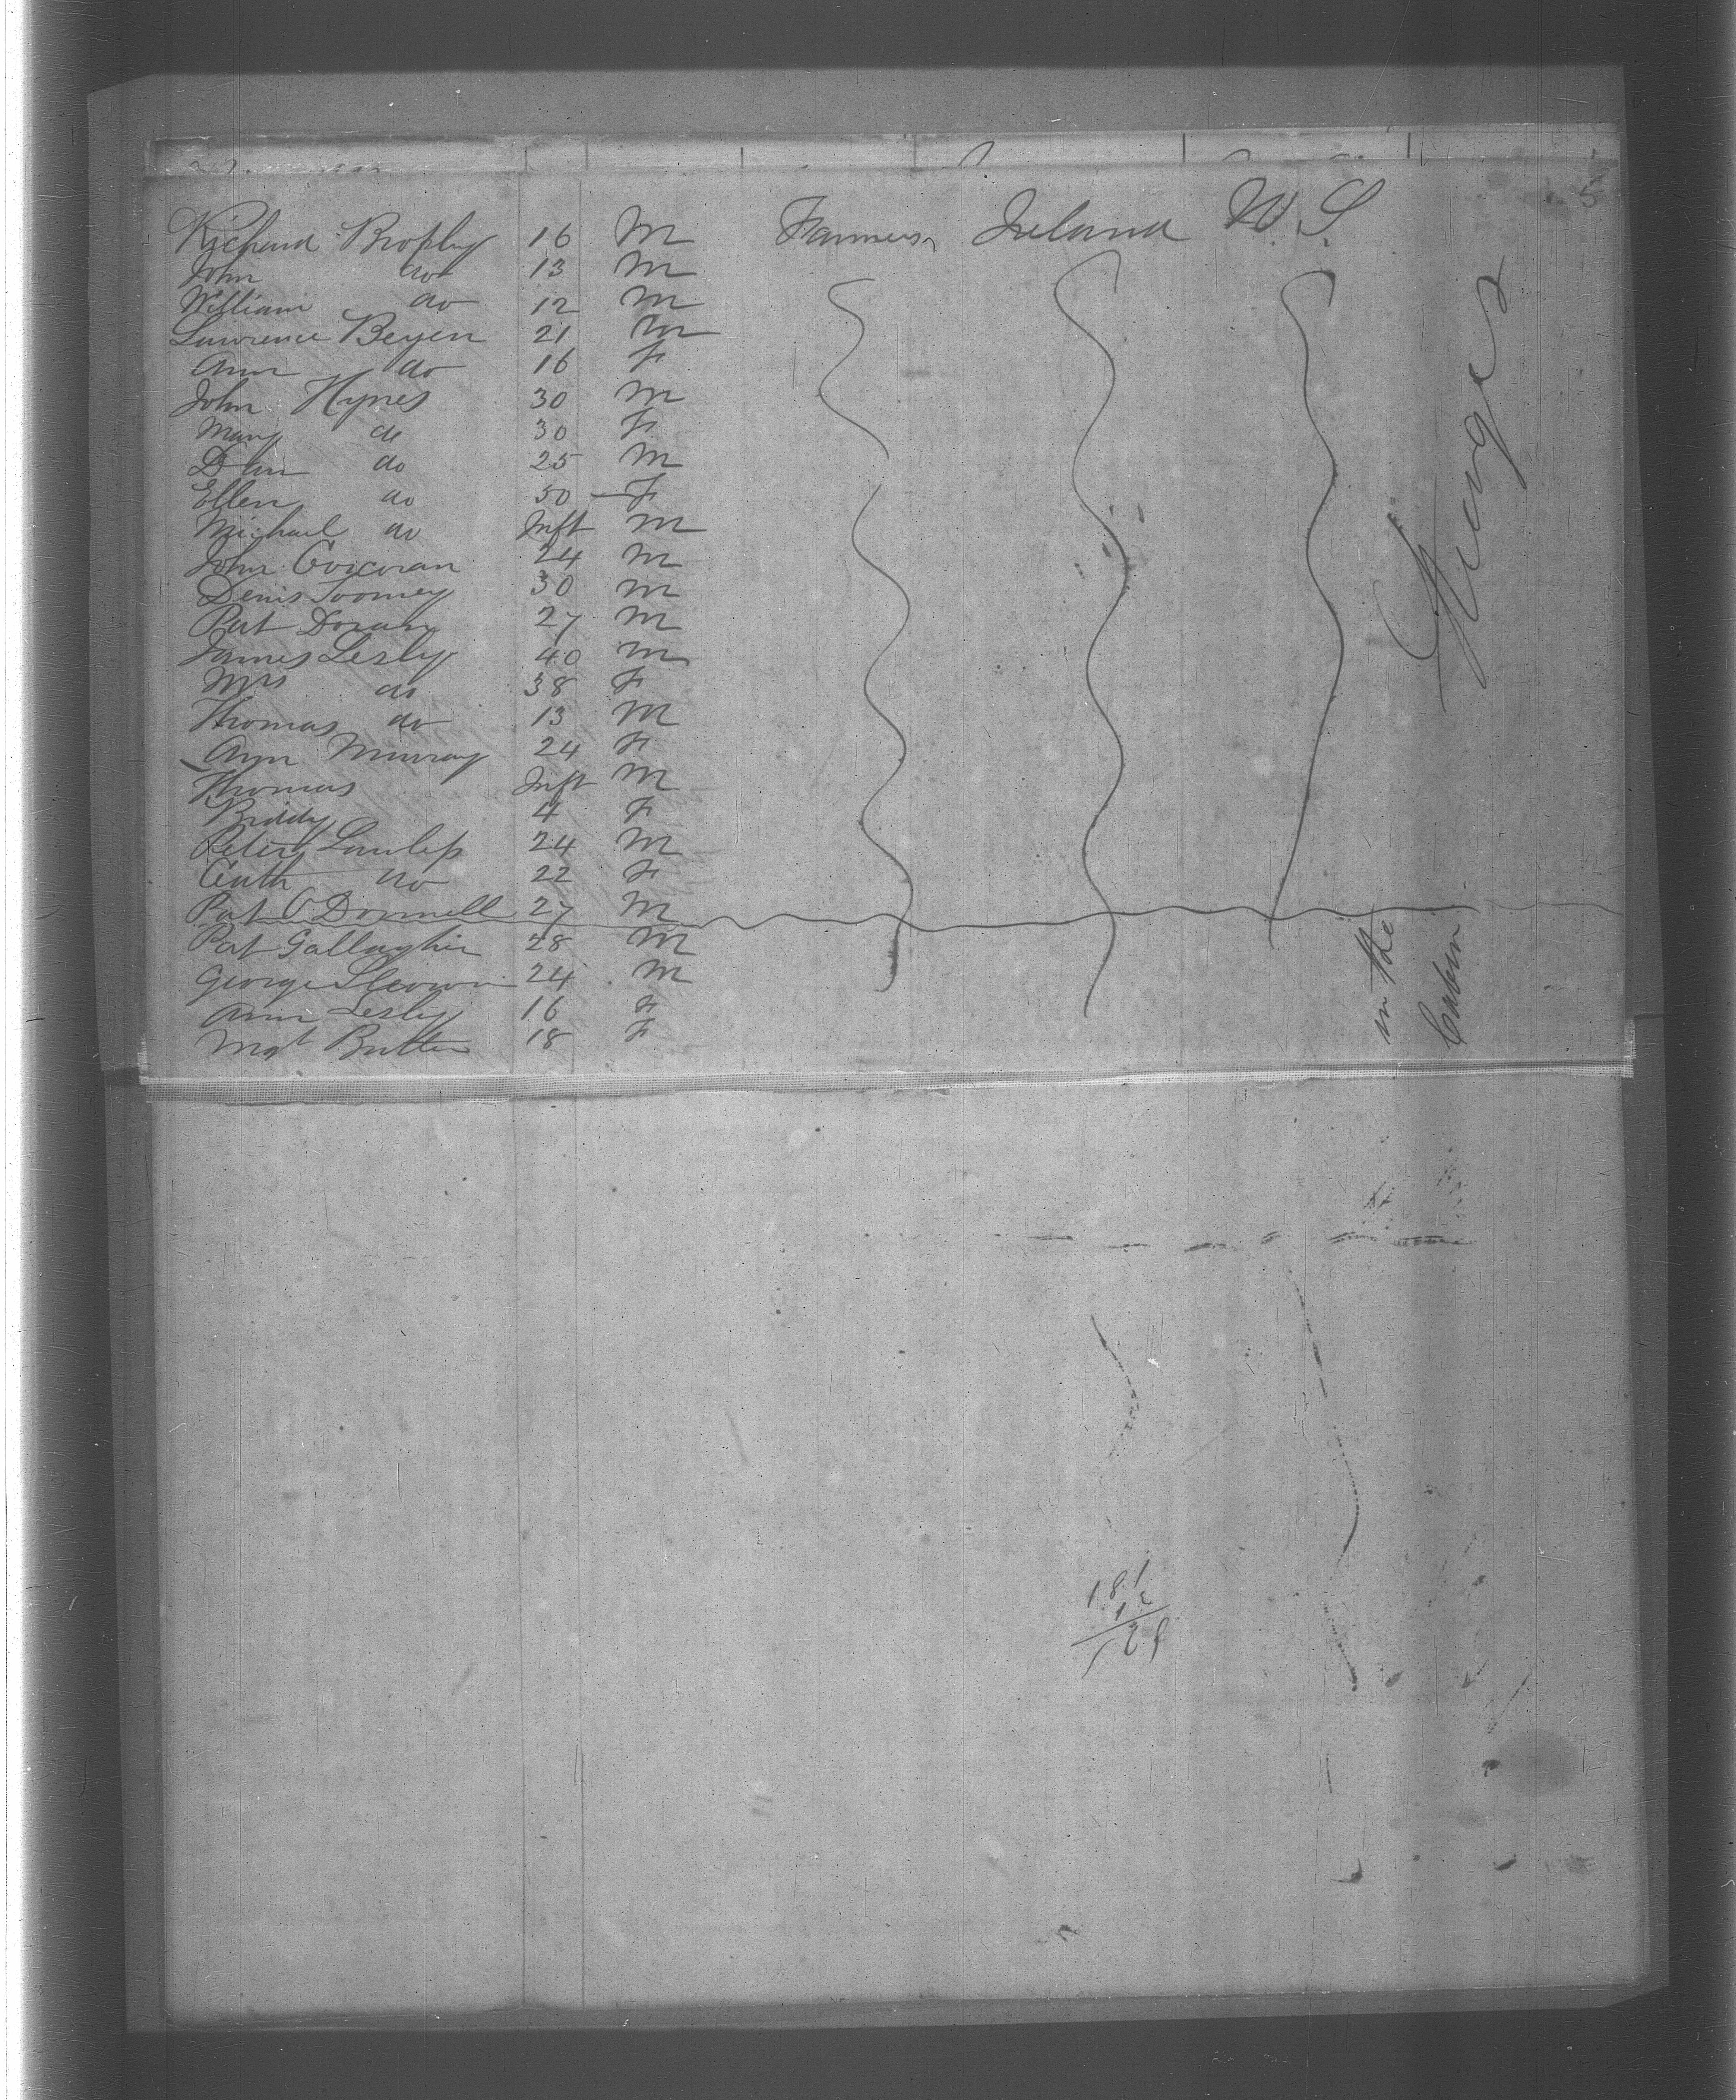 5
Richard Brophy 16 M Farmers Ireland W.S
John do 13 M
William do 12 M
Lawrence Beyen 21 M
Ann do 16 F
John Hynes 30 M
Mary do 30 F
Dan do 25 M
Ellen do 50 F
Michael do Inft M
John Corcoran 24 M
Denis Toomey 30 M
Pat Doran 27 M
James Lesly 40 M
Mrs do 38 F
Thomas do 13 M
Ann Murray 24 F
Thomas Inft M
Biddy 4 F
Peter 24 M
Cath do 22 F
Pat O Donnell 27 M
Pat Gallagher 28 M
George 24 M
Ann Lesly 16 F
Mgt 18 F
in the
Cabin
181